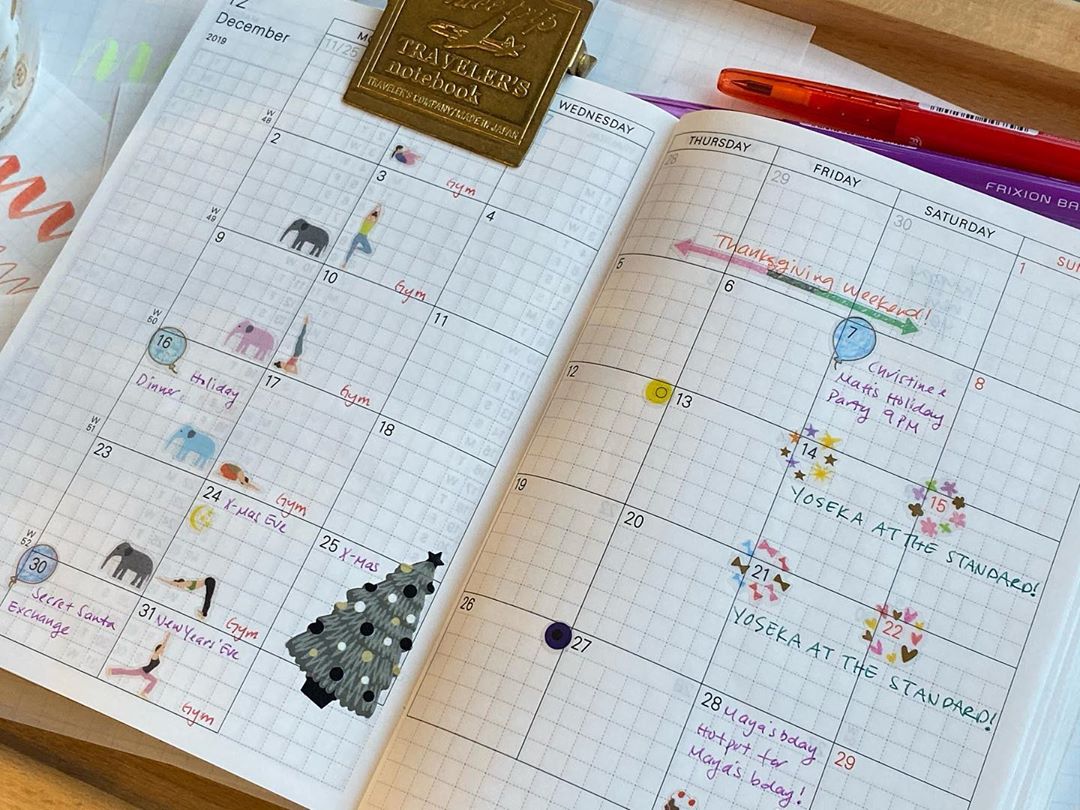 12
December
2019
TRAVELER'S
notebook
TRAVELER'S COMPANY MADE IN JAPAN
WEDNESDAY
THURSDAY
FRIDAY
SATURDAY
FRIXION
11/25
28
29
30
1
Thanksgiving Weekend!
W
48
Gym
2
3
4
5
6
7
8
Christine &
Matt's Holiday
Party 9PM
W
49
Gym
9
10
11
12
13
14
15
YOSEKA AT THE STANDARD!
W
50
Gym
16
17
18
19
20
21
22
Holiday
Dinner
YOSEKA AT THE STANDARD!
W
51
Gym
23
24
X-Mas Eve
25
X-Mas
26
27
28
Maya's bday
Hotpot for
Maya's bday!
29
W
52
Gym
30
Secret Santa
Exchange
31
New Years' Eve
Gym